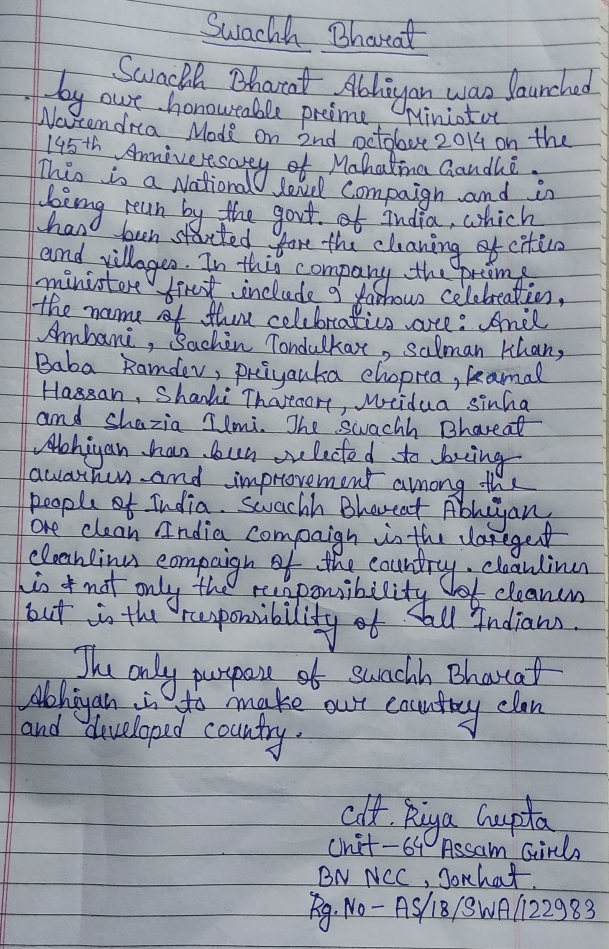 Swachh Bharat
Swachh Bharat Abhiyan was launched
by our honourable preime Minister
Narendra Modi on 2nd october 2014 on the
145th Anniversary of Mahatma Gandhi.
This is a National level Compaign and is
being run by the govt. of India, which
has been started fore the cleaning of cities
and villages. In this company the preime
ministere first include 9 famous celebreties,
the name of these celebreties are: Anil
Ambani, Sachin Tondulkar, Salman Khan,
Baba Ramdev, Preiyanka chopra, Kamal
Hassan, Shashi Tharoore, Mridua sinha
and Shazia Ilmi. The swachh Bharat
Abhiyan has been selected to being
awarness and improvement among the
people of India. Swachh Bharat Abhiyan
ore clean India compaign is the laregest
cleanlines compaign of the country. cleanlines
is not only the reesponsibility of cleaners
but is the reesponsibility of all Indians.
The only purpose of swachh Bharat
Abhiyan is to make our country clen
and developed country.
Cdt. Riya Gupta
Unit-64 Assam Girls
BN NCC, Jorhat.
Rg. No - AS/18/SWA/122983